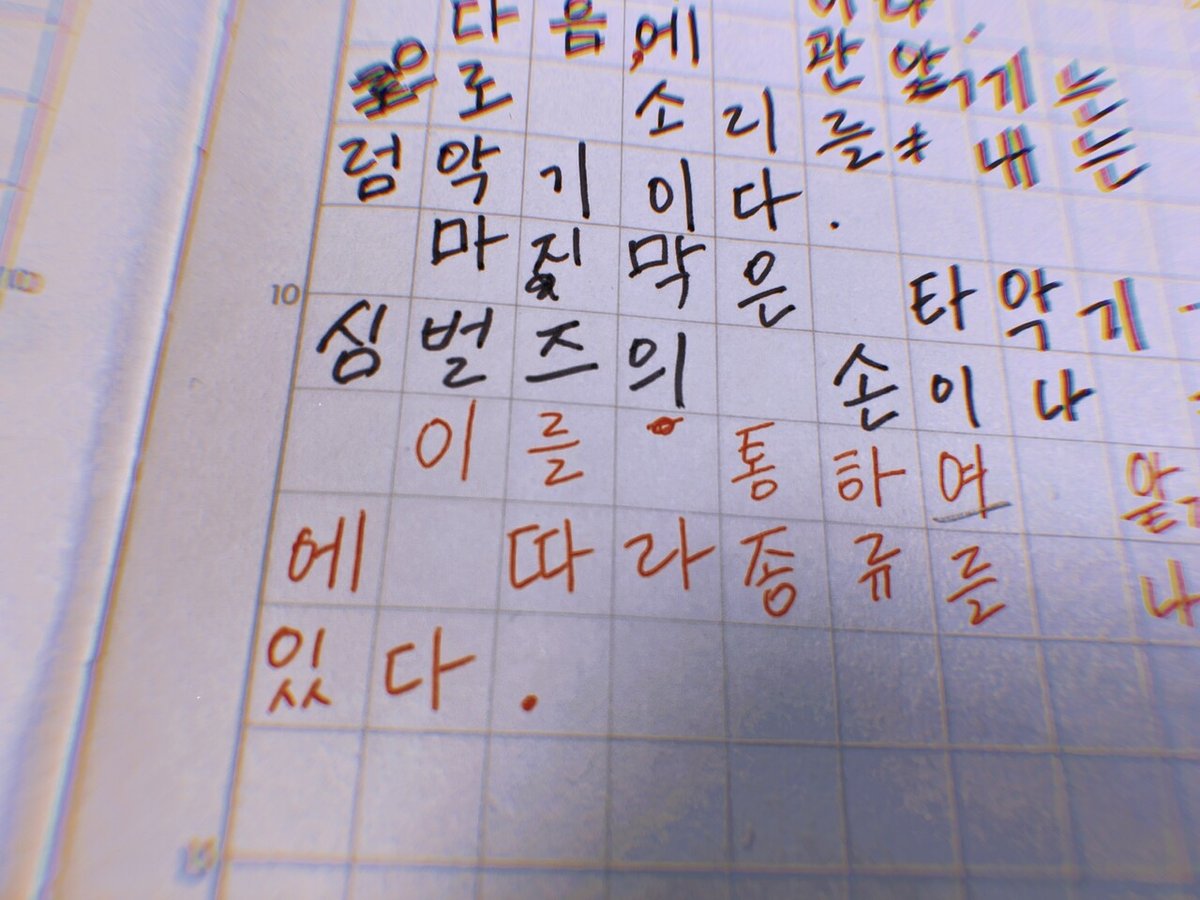 다음에 관악기는
은로 소리를 내는
럼악기이다.
마지막은 타악기
10
심벌즈의 손이나
이를 통하여
에 따라종류를 나
있다.